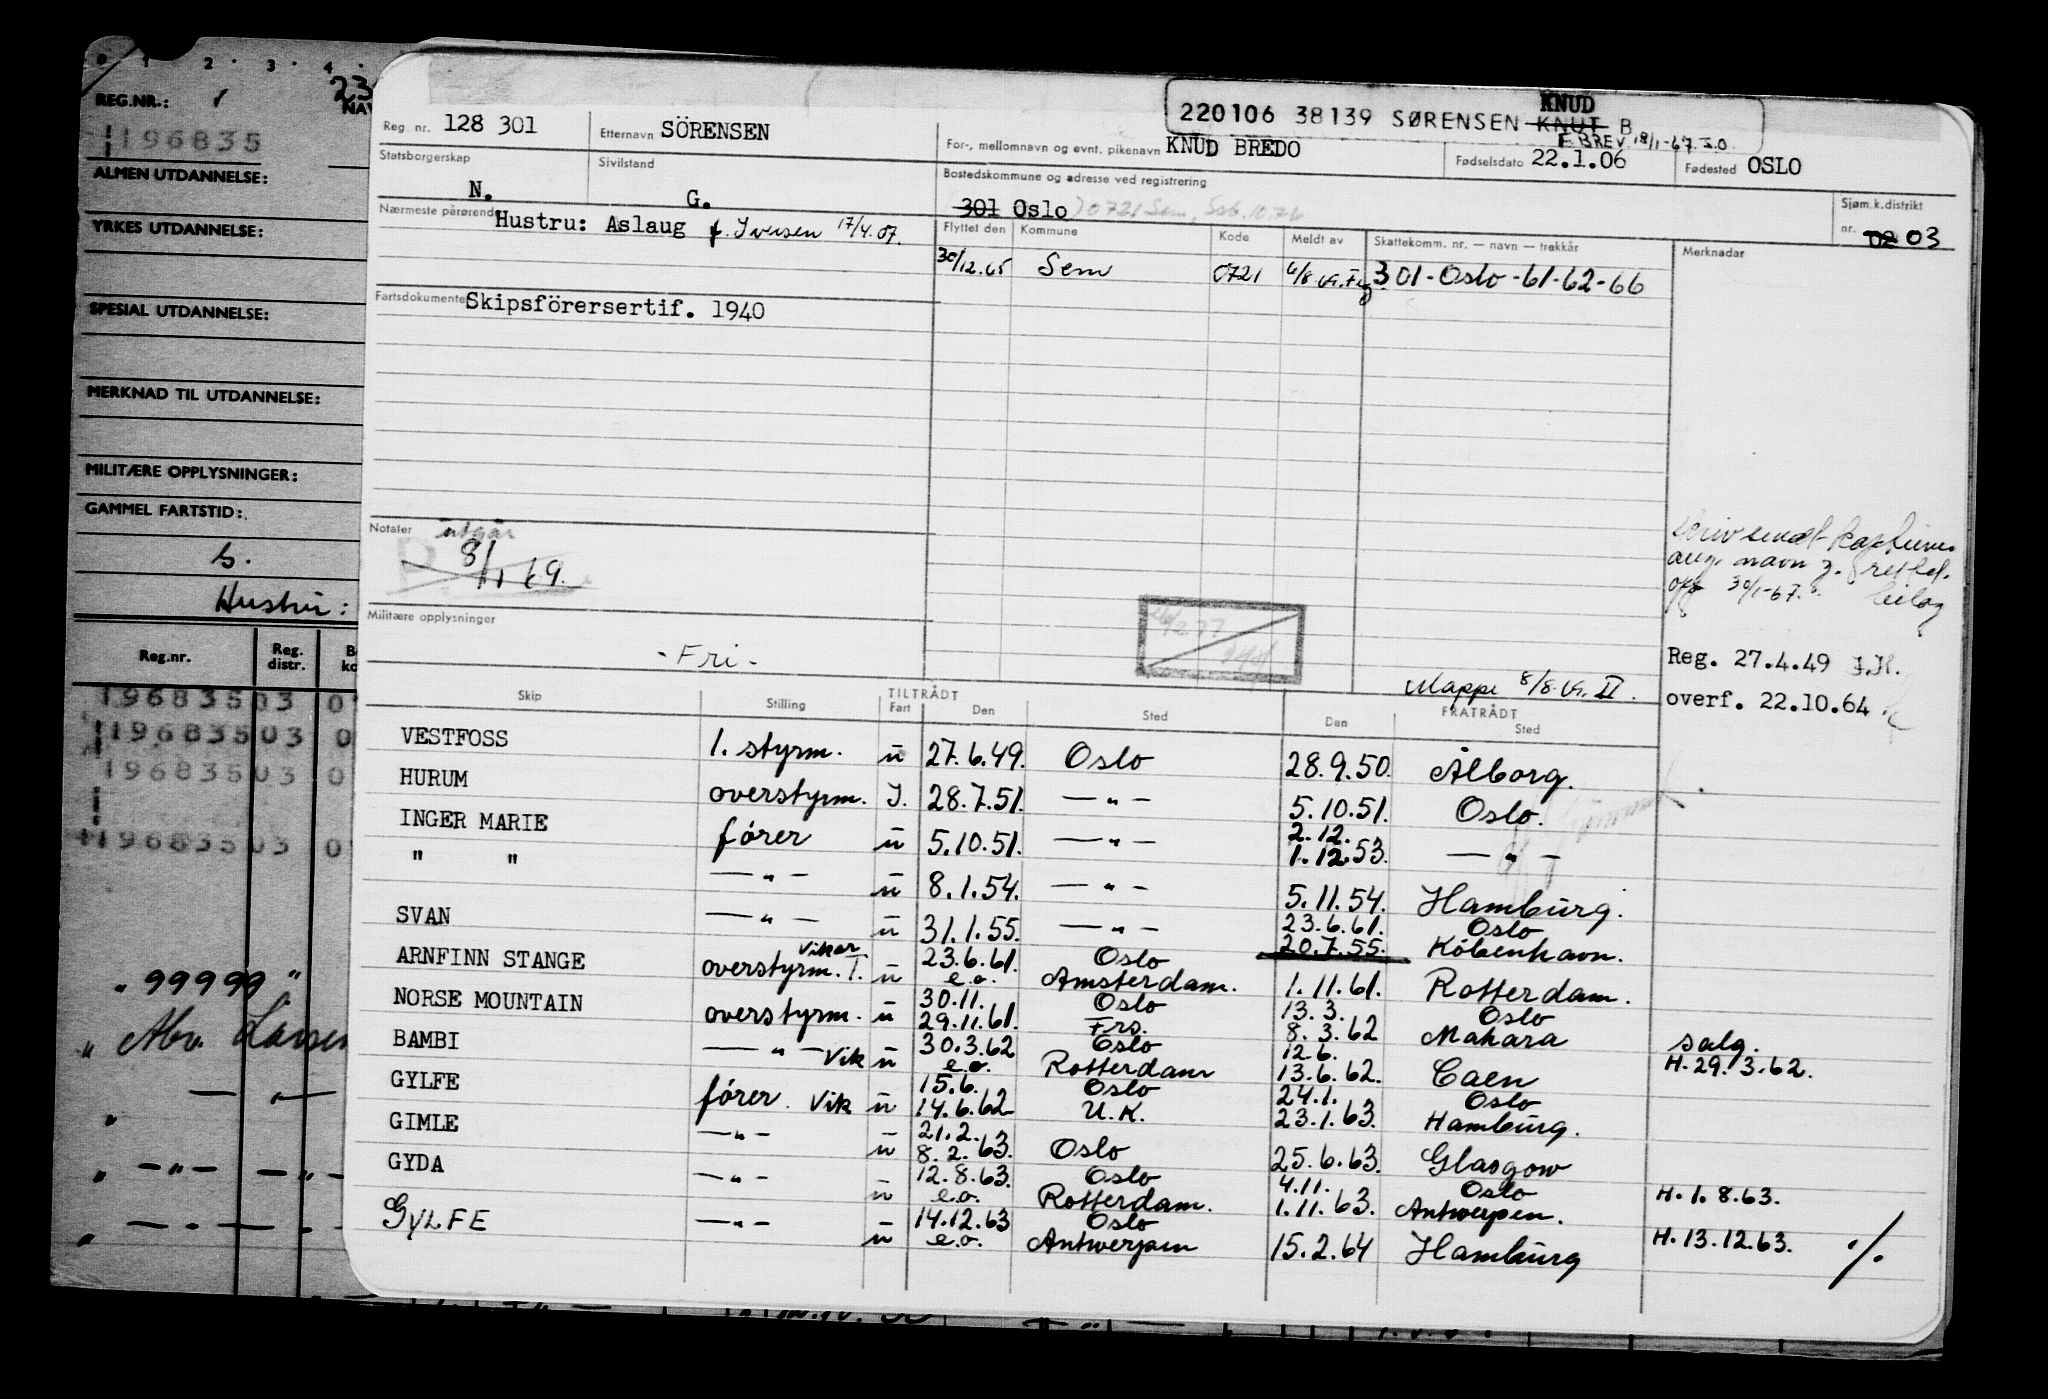 0 1 2 . 3 . 4 .
23
REG.NR.:
196835
ALMEN UTDANNELSE:
YRKES UTDANNELSE:
SPESIAL UTDANNELSE:
MERKNAD TIL UTDANNELSE:
MILITÆRE OPPLYSNINGER:
GAMMEL FARTSTID:
s.
Hustru:
Reg.nr. Reg. distr.
196835 03
196835 03
196835 03
196835 03
" 99999 "
KNUD
220106 38139 SØRENSEN KNUT B
F BREV 18/1-67. I.O.
Reg. nr. 128 301 Etternavn SÖRENSEN For-, mellomnavn og evnt. pikenavn KNUD BREDO Fødselsdato 22.1.06 Fødested OSLO
Statsborgerskap N. Sivilstand G. Bostedskommune og adresse ved registrering
301 Oslo ) 0721 Sem, Ssb. 10.76 Sjøm.k.distrikt nr. 02 03
Nærmeste pårørende Hustru: Aslaug f. Iversen 17/4.07.
Flyttet den Kommune Kode Meldt av Skattekomm. nr. — navn — trekkår Merknader
30/12.65 Sem 0721 301-Oslo-61-62-66
Fartsdokumenter Skipsförersertif. 1940
Notater utgår
8/1 69.
Militære opplysninger
- Fri -
Mappe 8/8. II.
30/1-67. bilag
Reg. 27.4.49 J.K.
overf. 22.10.64
TILTRÅDT FRATRÅDT
Skip Stilling Fart Den Sted Den Sted
VESTFOSS 1. styrm. u 27.6.49. Oslo 28.9.50. Ålborg.
HURUM overstyrm. I. 28.7.51. — " — 5.10.51. Oslo.
INGER MARIE fører u 5.10.51. — " — 2.12. 1.12.53. — " —
" " — " — u 8.1.54. — " — 5.11.54. Hamburg.
SVAN — " — u 31.1.55. — " — 23.6.61. Oslo
20.7.55. København.
ARNFINN STANGE overstyrm. Vikar T. u 23.6.61. Oslo
e.o. Amsterdam. 1.11.61. Rotterdam.
NORSE MOUNTAIN overstyrm. u 30.11. Oslo 13.3. Oslo
29.11.61. Frs. 8.3.62 Makara salg.
BAMBI — " — Vik u 30.3.62 Oslo 12.6.
e.o. Rotterdam 13.6.62. Caen H.29.3.62.
GYLFE fører. Vik u 15.6. Oslo 24.1. Oslo
14.6.62 U.K. 23.1.63. Hamburg.
GIMLE — " — u 21.2.
8.2.63. Oslo 25.6.63. Glasgow
GYDA — " — u 12.8.63. Oslo 4.11. Oslo
e.o. Rotterdam. 1.11.63. Antwerpen. H.1.8.63.
GYLFE — " — u 14.12.63 Oslo
e.o. Antwerpen 15.2.64 Hamburg H.13.12.63. ./.